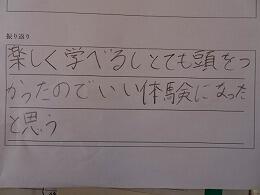 振り返り
楽しく学べるしとても頭をつ
かったのでいい体験になった
と思う